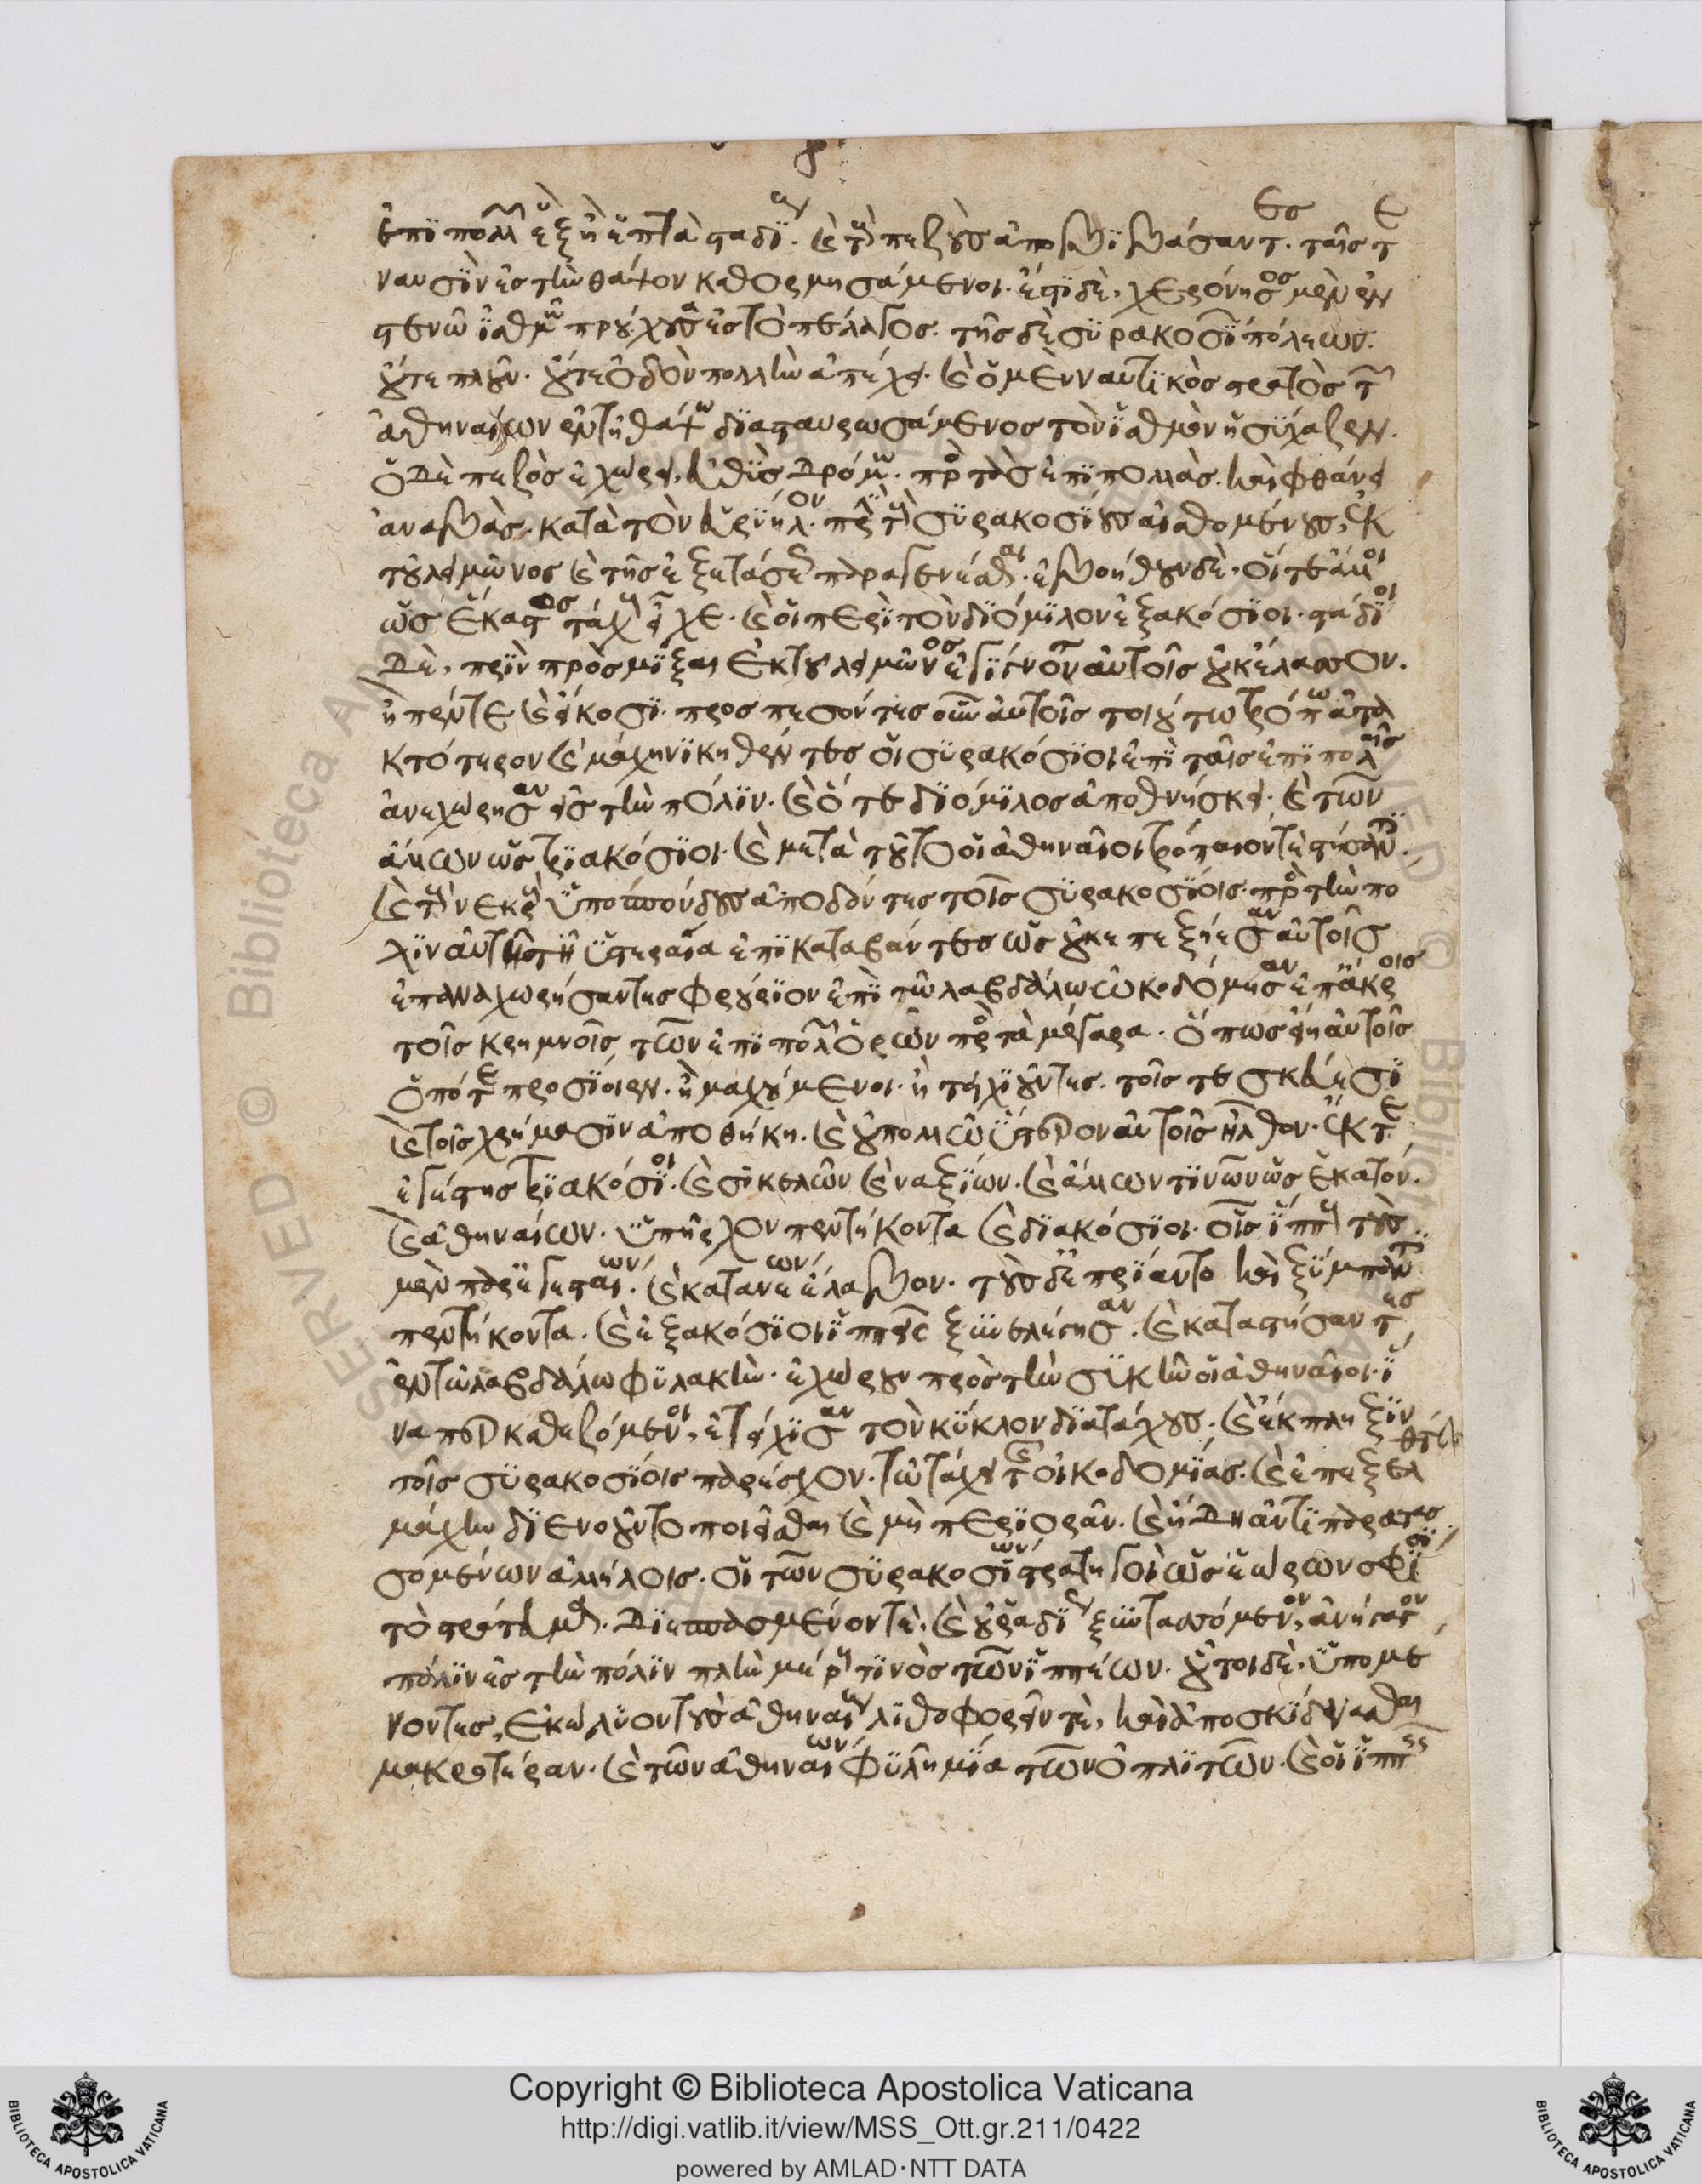 ἐπιπολῶν ἓξ ἢ ἑπτὰ σταδίους. καὶ τοὺς πεζοὺς ἀποβιβάσαντες. ταῖς τε
ναυσὶν ἐς τὴν θάψον καθορμησάμενοι. ἔστι δὲ, χερσόνησος μὲν ἐν
στενῷ ἰσθμῷ προύχουσα ἐς τὸ πέλαγος. τῆς δὲ συρακοσίων πόλεως.
οὔτε πλοῦν. οὔτε ὁδὸν πολλὴν ἀπέχει. καὶ ὁ μὲν ναυτικὸς στρατὸς τῶν
ἀθηναίων ἐν τῇ θάψῳ διασταυρωσάμενος τὸν ἰσθμὸν ἡσύχαζεν.
ὁ δὲ πεζὸς ἐχώρει. εὐθὺς δρόμῳ. πρὸς τὰς ἐπιπολὰς. καὶ φθάνει
ἀναβὰς. κατὰ τὸν εὐρύηλον. πρὶν τοὺς συρακοσίους αἰσθομένους, ἐκ
τοῦ λειμῶνος καὶ τῆς ἐξετάσεως παραγενέσθαι. ἐβοήθουν δὲ. οἵ τε ἄλλοι
ὡς ἕκαστος τάχους εἶχε. καὶ οἱ περὶ τὸν διόμιλον ἑξακόσιοι. στάδιοι
δὲ, πρὶν προσμῖξαι ἐκ τοῦ λειμῶνος ἐγίγνοντο αὐτοῖς οὐκ ἔλασσον.
ἢ πέντε καὶ εἴκοσι. προσπεσόντες οὖν αὐτοῖς τοιούτῳ τρόπῳ ἀτα
κτότερον καὶ μάχῃ νικηθέντες οἱ συρακόσιοι ἐπὶ ταῖς ἐπιπολαῖς
ἀνεχώρησαν ἐς τὴν πόλιν. καὶ ὅ τε διόμιλος ἀποθνήσκει. καὶ τῶν
ἄλλων ὡς τριακόσιοι. καὶ μετὰ τοῦτο οἱ ἀθηναῖοι τροπαῖόν τε στήσαντες.
καὶ τοὺς νεκροὺς ὑποσπόνδους ἀποδόντες τοῖς συρακοσίοις. πρὸς τὴν πό
λιν αὐτὴν τῇ ὑστεραίᾳ ἐπικαταβάντες ὡς οὐκ ἐπεξῄεσαν αὐτοῖς
ἐπαναχωρήσαντες φρούριον ἐπὶ τῷ λαβδάλῳ ᾠκοδόμησαν ἐπ' ἄκροις
τοῖς κρημνοῖς, τῶν ἐπιπολῶν ὁρῶν πρὸς τὰ μέγαρα. ὅπως εἴη αὐτοῖς
ὁπότε προσίοιεν. ἢ μαχούμενοι. ἢ τειχιοῦντες. τοῖς τε σκεύεσι
καὶ τοῖς χρήμασιν ἀποθήκη. καὶ οὐ πολλῷ ὕστερον αὐτοῖς ἦλθον. ἔκ τε
ἐγέστης τριακόσιοι. καὶ σικελῶν καὶ ναξίων. καὶ ἄλλων τινῶν ὡς ἑκατόν.
καὶ ἀθηναίων. ὑπῆρχον πεντήκοντα καὶ διακόσιοι. οἷς ἵππους τοὺς
μὲν παρ' ἐγεσταίων. καὶ καταναίων ἔλαβον. τοὺς δ' ἐπρίαντο καὶ ξύμπαντες
πεντήκοντα. καὶ ἑξακόσιοι ἱππεῖς ξυνελέγησαν. καὶ καταστήσαντες
ἐν τῷ λαβδάλῳ φυλακὴν. ἐχώρουν πρὸς τὴν συκῆν οἱ ἀθηναῖοι. ἵ
ναπερ καθεζόμενοι, ἐτείχισαν τὸν κύκλον διὰ τάχους. καὶ ἔκπληξιν
τοῖς συρακοσίοις παρέσχον. τῷ τάχει τῆς οἰκοδομίας. καὶ ἐπεξελ
μάχην διενοοῦντο ποιεῖσθαι καὶ μὴ περιορᾶν. καὶ ἤδη ἀντιπαρατασ
σομένων ἀλλήλοις. οἱ τῶν συρακοσίων στρατηγοὶ ὡς ἑώρων σφίσι
τὸ στράτευμα. διεσπασμένον τε. καὶ οὐ ῥᾳδίως ξυντασσόμενον, ἀνήγαγον
πάλιν ἐς τὴν πόλιν πλὴν μέρους τινὸς τῶν ἱππέων. οὗτοι δὲ. ὑπομέ
νοντες, ἐκώλυον τοὺς ἀθηναίους λιθοφορεῖν τε, καὶ ἀποσκίδνασθαι
μακροτέραν. καὶ τῶν ἀθηναίων φυλὴ μία τῶν ὁπλιτῶν. καὶ οἱ ἱππῆς
Copyright © Biblioteca Apostolica Vaticana
http://digi.vatlib.it/view/MSS_Ott.gr.211/0422
powered by AMLAD·NTT DATA